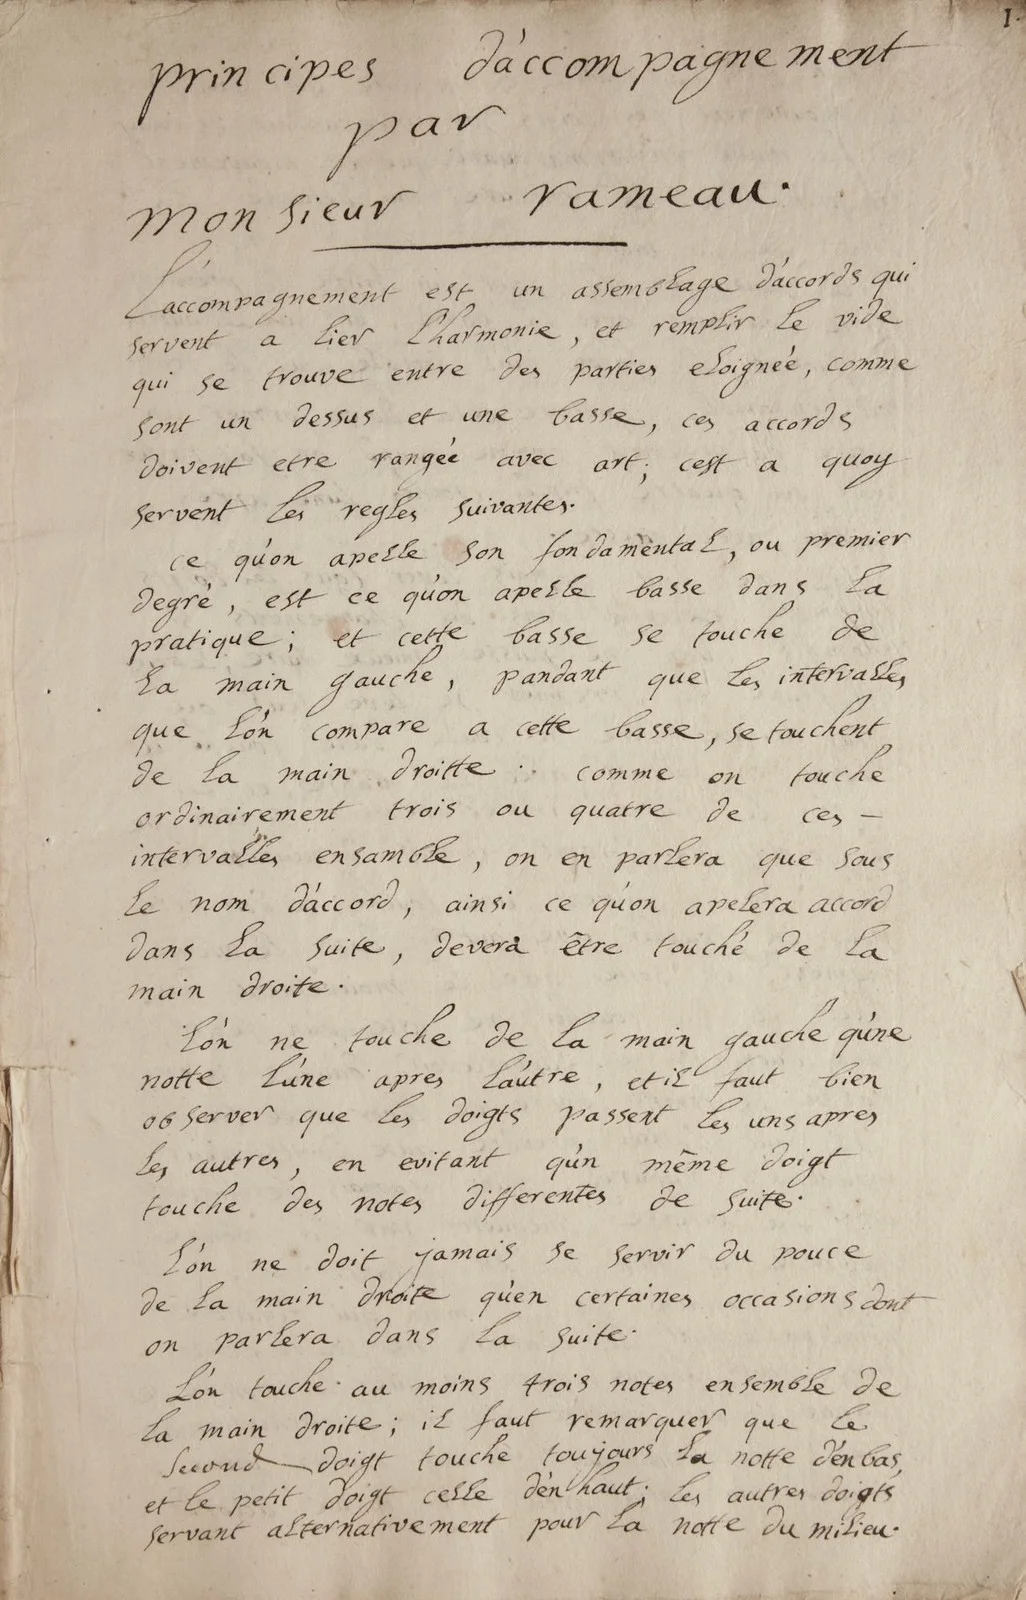 1.
principes d'accompagnement
par
Monsieur rameau.
L'accompagnement est un assemblage d'accords qui
servent a lier l'harmonie, et remplir le vide
qui se trouve entre des parties eloignée, comme
sont un dessus et une basse, ces accords
doivent etre rangée avec art; c'est a quoy
servent les regles suivantes.
ce qu'on apelle son fondamental, ou premier
degré, est ce qu'on apelle basse dans la
pratique; et cette basse se touche de
la main gauche, pandant que les intervalles
que l'on compare a cette basse, se touchent
de la main droitte. comme on touche
ordinairement trois ou quatre de ces –
intervalles ensamble, on en parlera que sous
le nom d'accord, ainsi ce qu'on apelera accord
dans la suite, devera être touché de la
main droite.
L'on ne touche de la main gauche qu'ne
notte l'une apres l'autre, et il faut bien
observer que les doigts passent les uns apres
les autres, en evitant qu'n même doigt
touche des notes differentes de suite.
L'on ne doit jamais se servir du pouce
de la main droite qu'en certaines occasions dont
on parlera dans la suite.
L'on touche au moins trois notes ensemble de
la main droite; il faut remarquer que le
second doigt touche toujours la notte d'en bas,
et le petit doigt celle d'en haut; les autres doigts
servant alternativement pour la notte du milieu.